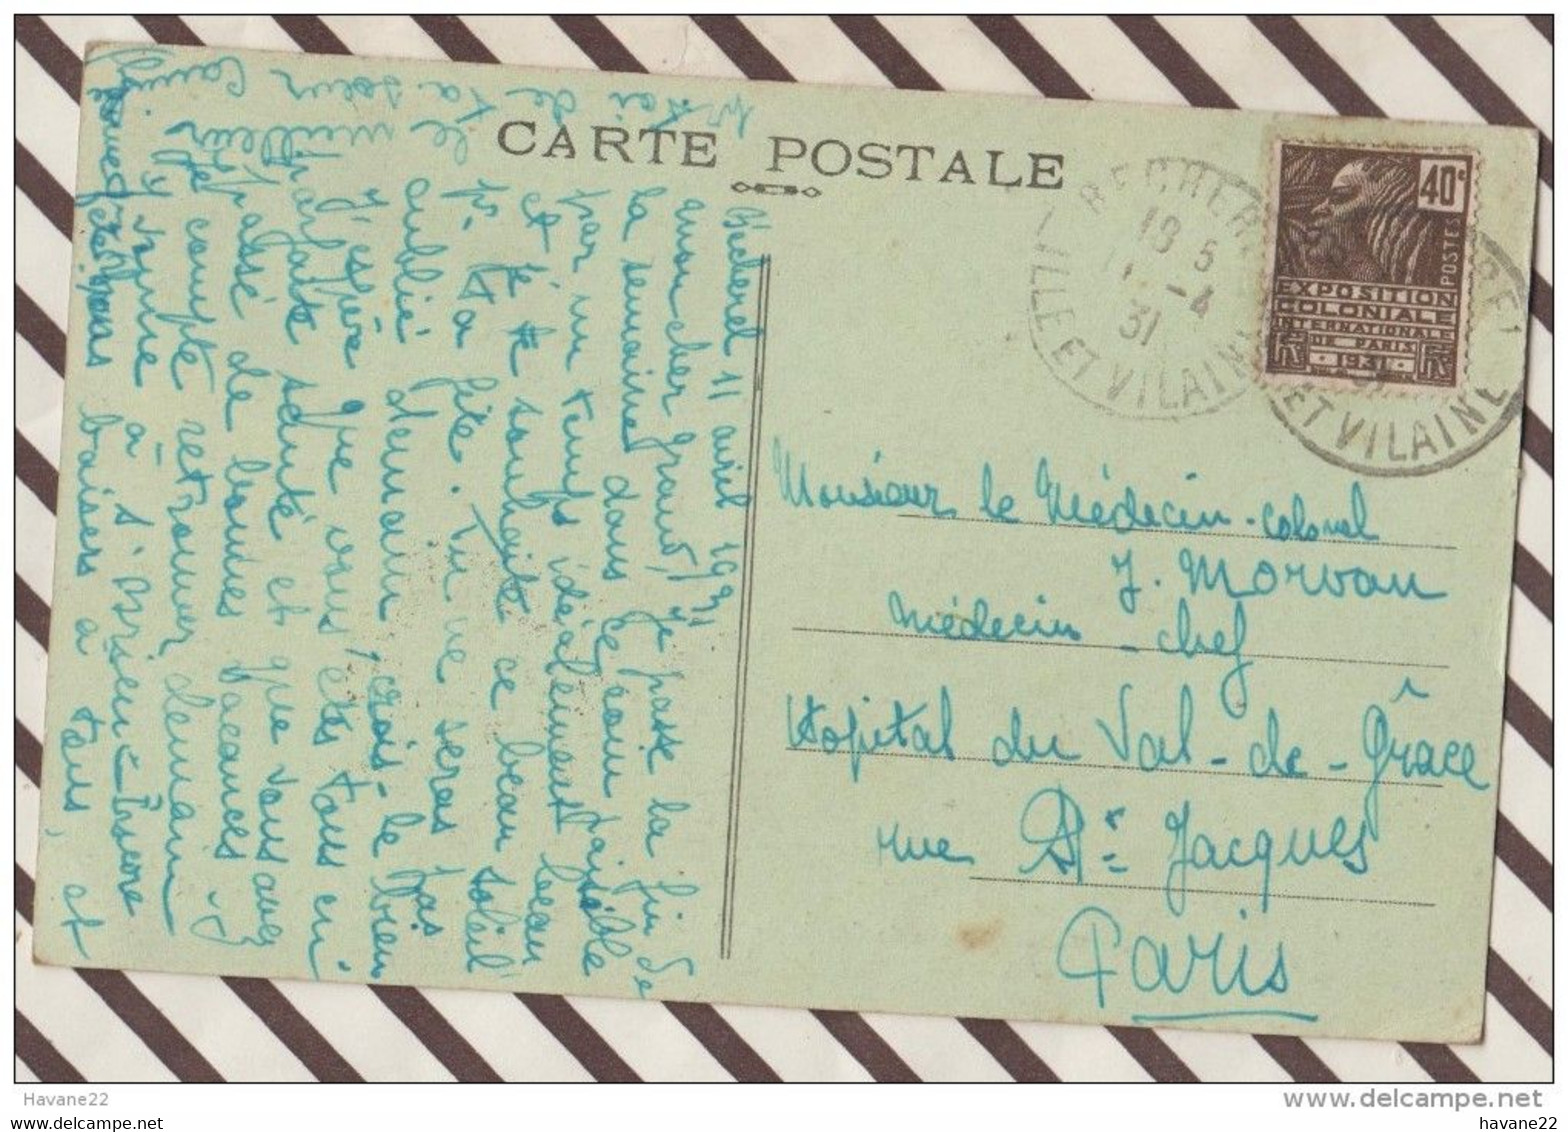 CARTE POSTALE
BECHEREL
18 5
11 -4
31
ILLE ET VILAINE
ET VILAINE
40c
POSTES
EXPOSITION
COLONIALE
INTERNATIONALE
DE PARIS
1931
Monsieur le Médecin-colonel
J. Morvan
Médecin-chef
Hôpital du Val-de-Grâce
rue St Jacques
Paris
Bécherel 11 avril 1931
mon cher grand, je passe la fin de
la semaine dans ce coin paisible
par un temps idéalement beau
et je te souhaite ce beau soleil
pr ta fête. Tu ne seras pas
oublié demain, crois-le bien
J'espère que vous êtes tous en
parfaite santé et que vous avez
passé de bonnes vacances. J
je compte retrouver demain
à
baisers à tous, et
pr toi de ta sœur
le meilleur
Havane22
www.delcampe.net
havane22